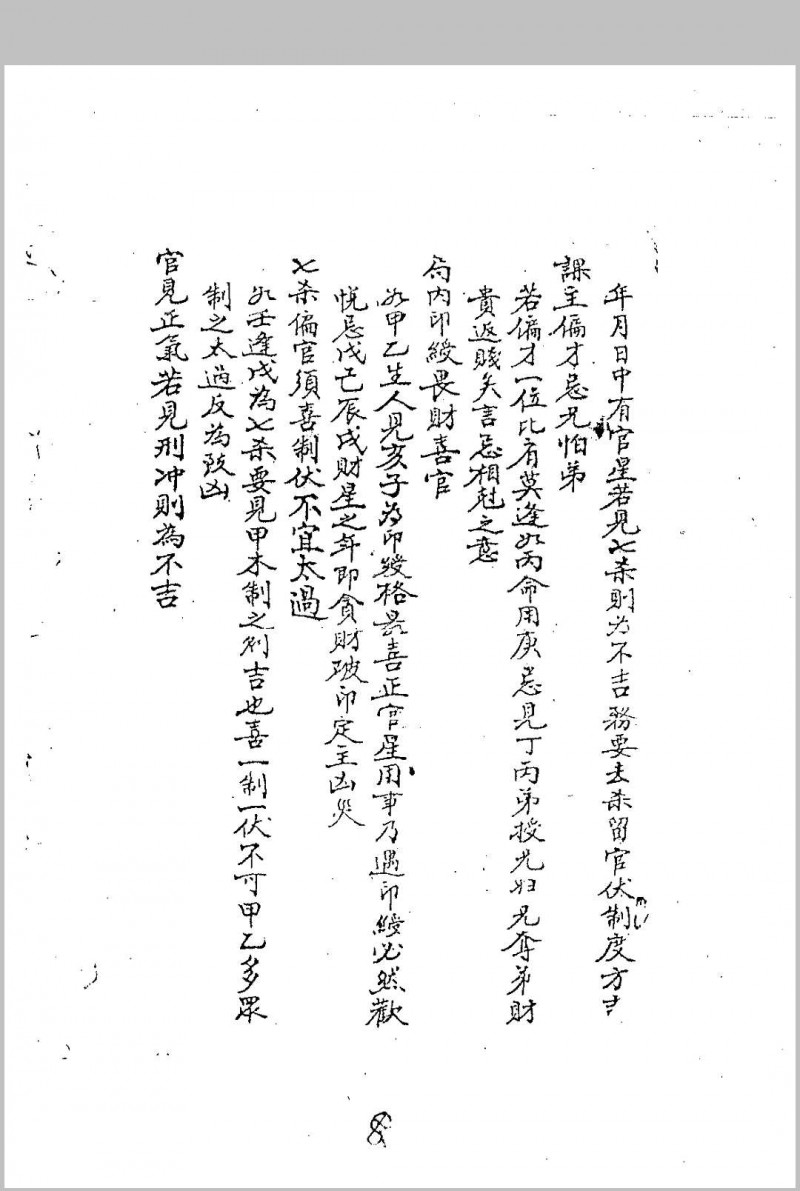 年月日中有官星若見七杀則为不吉務要去杀留官伏制度方吉
課主偏才忌兄怕弟
若偏才一位比肩莫逢如丙命用庚忌見丁丙弟授兄妇兄夺弟財
貴返賤矣言忌相尅之意
局内印綬畏財喜官
如甲乙生人見亥子为印綬格最喜正官星用事乃遇印綬必然歡
悦忌戊己辰戌財星之年即貪財破印定主凶災
七杀偏官須喜制伏不宜太過
如壬逢戊為七杀要見甲木制之則吉也喜一制一伏不可甲乙多眾
制之太過反為凶
官見正氣若見刑冲則為不吉
8